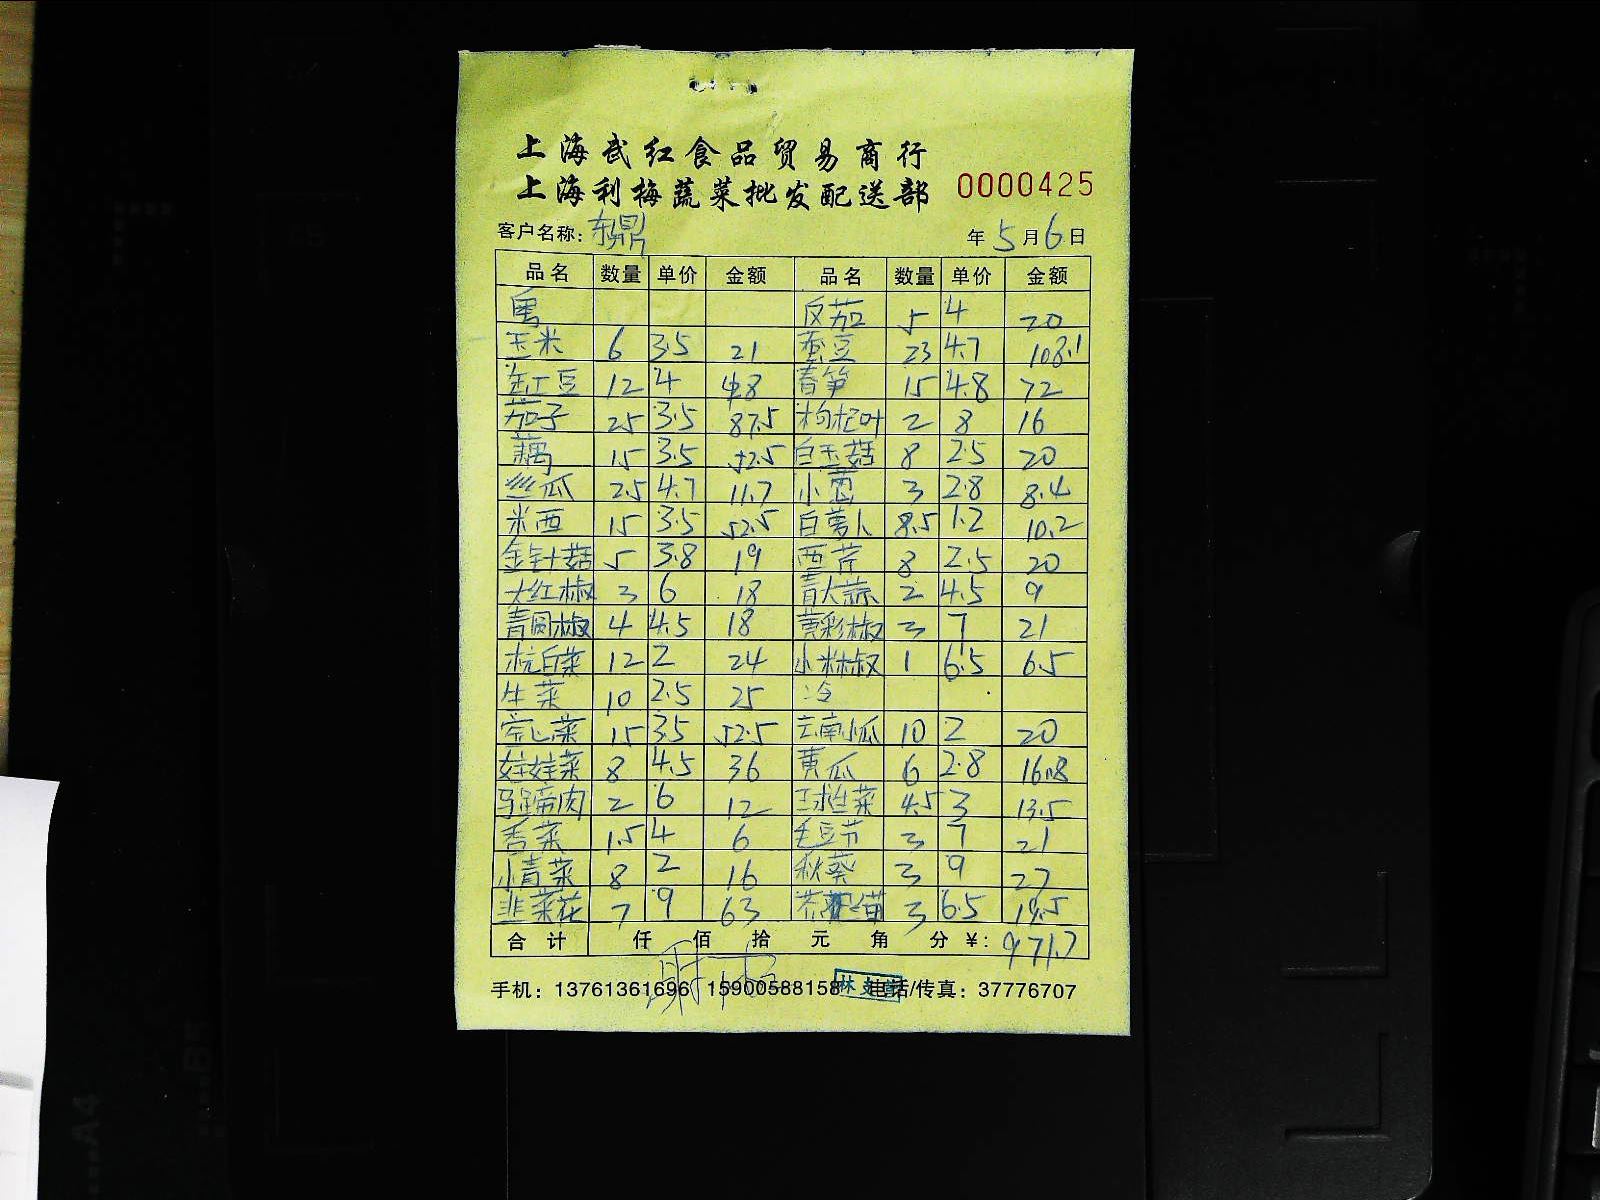 上海武红食品贸易商行
上海利梅蔬菜批发配送部 0000425
客户名称: 东鼎 年 5 月 6 日
品名 数量 单价 金额 品名 数量 单价 金额
粤 反茄 5 4 20
玉米 6 3.5 21 蚕豆 23 4.7 108.1
缸豆 12 4 48 春笋 15 4.8 72
茄子 25 3.5 87.5 枸杞叶 2 8 16
藕 15 3.5 52.5 白玉菇 8 2.5 20
丝瓜 2.5 4.7 11.7 小葱 3 2.8 8.4
米西 15 3.5 52.5 白萝卜 8.5 1.2 10.2
金针菇 5 3.8 19 西芹 8 2.5 20
大红椒 3 6 18 青大蒜 2 4.5 9
青圆椒 4 4.5 18 黄彩椒 3 7 21
杭白菜 12 2 24 小米椒 1 6.5 6.5
生菜 10 2.5 25 冷
空心菜 15 3.5 52.5 云南小瓜 10 2 20
娃娃菜 8 4.5 36 黄瓜 6 2.8 16.8
马蹄肉 2 6 12 4.5 3 13.5
香菜 1.5 4 6 毛豆节 3 7 21
小青菜 8 2 16 秋葵 3 9 27
韭菜花 7 9 63 3 6.5 19.5
合计 仟 佰 拾 元 角 分 ¥: 971.7
手机: 13761361696 15900588158 电话/传真: 37776707